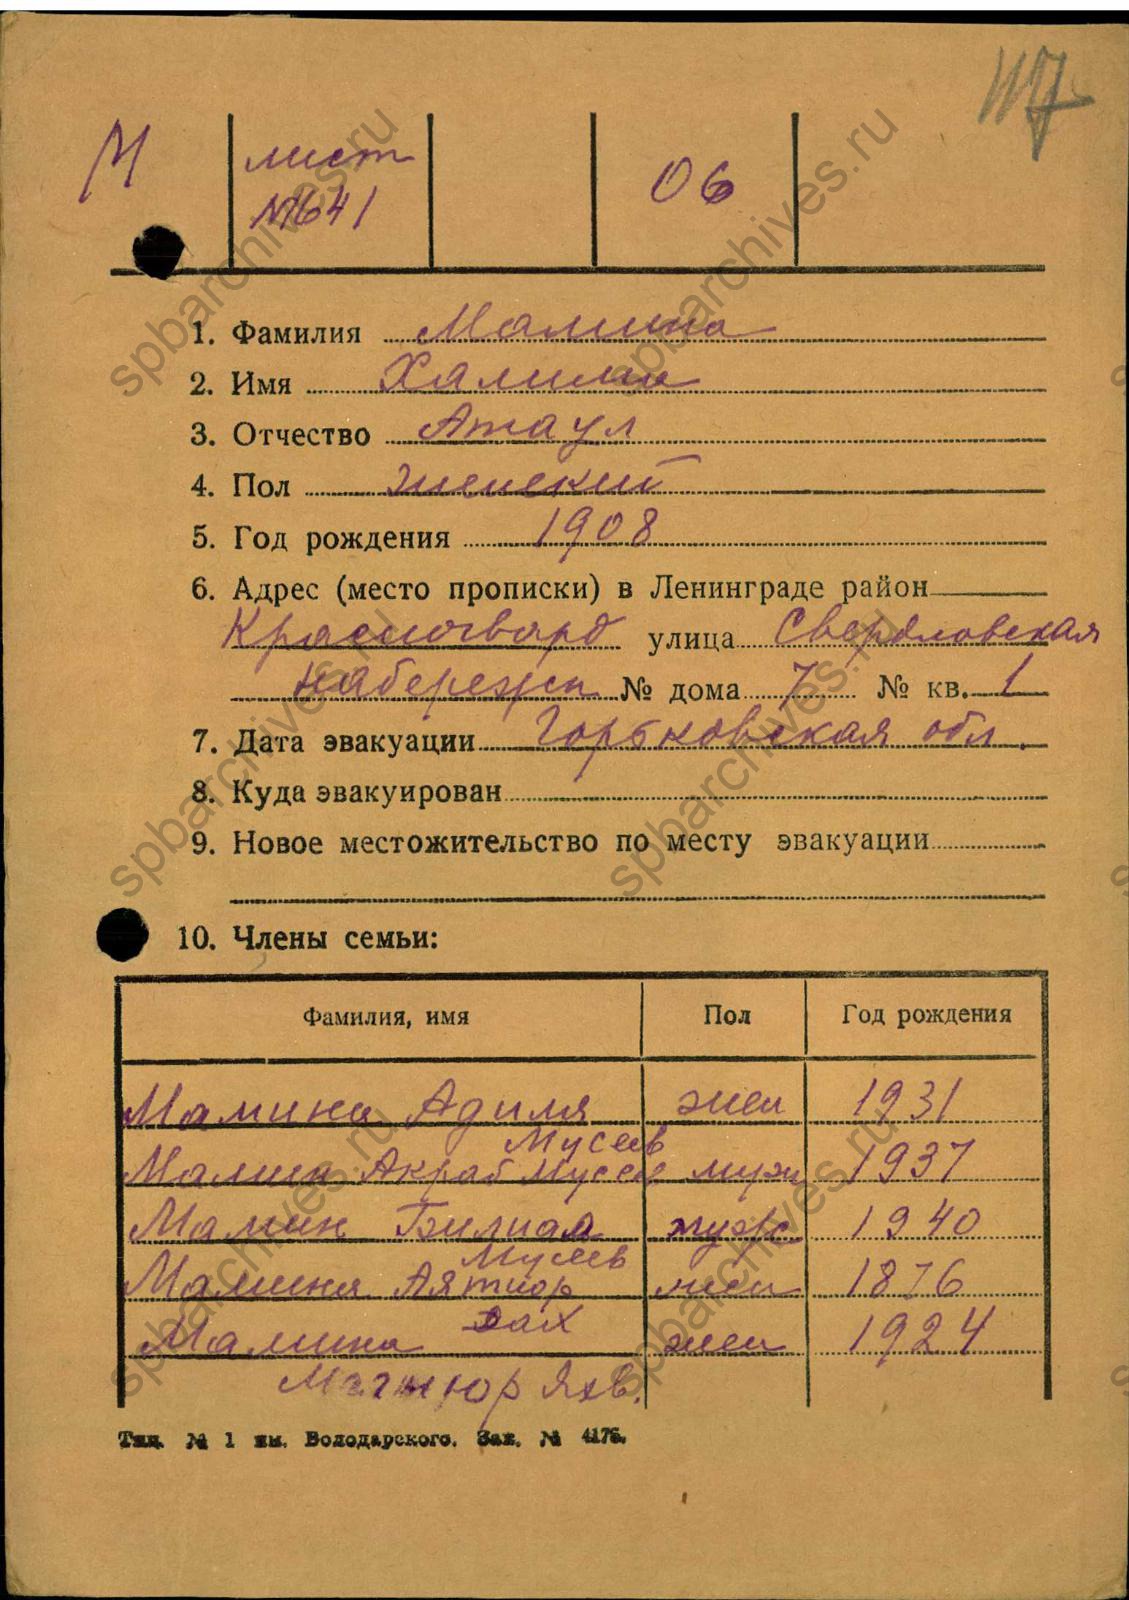 117
М лист 06
№641
1. Фамилия Мамина
2. Имя Халима
3. Отчество Атаул
4. Пол женский
5. Год рождения 1908
6. Адрес (место прописки) в Ленинграде район
Красногвард улица Свердловская
набережн № дома 7 № кв. 1
7. Дата эвакуации Горьковская обл.
8. Куда эвакуирован
9. Новое местожительство по месту эвакуации
10. Члены семьи:
Фамилия, имя Пол Год рождения
Мамина Адиля жен 1931
Мусеев
Мамин Акраб Мусеев муж 1937
Мамин Билиал муж 1940
Мусеев
Мамина жен 1876
Мамина жен 1924
Яхв.
Тип. № 1 им. Володарского. Зак. № 4176.
spbarchives.ru
spbarchives.ru
spbarchives.ru
spbarchives.ru
spbarchives.ru
spbarchives.ru